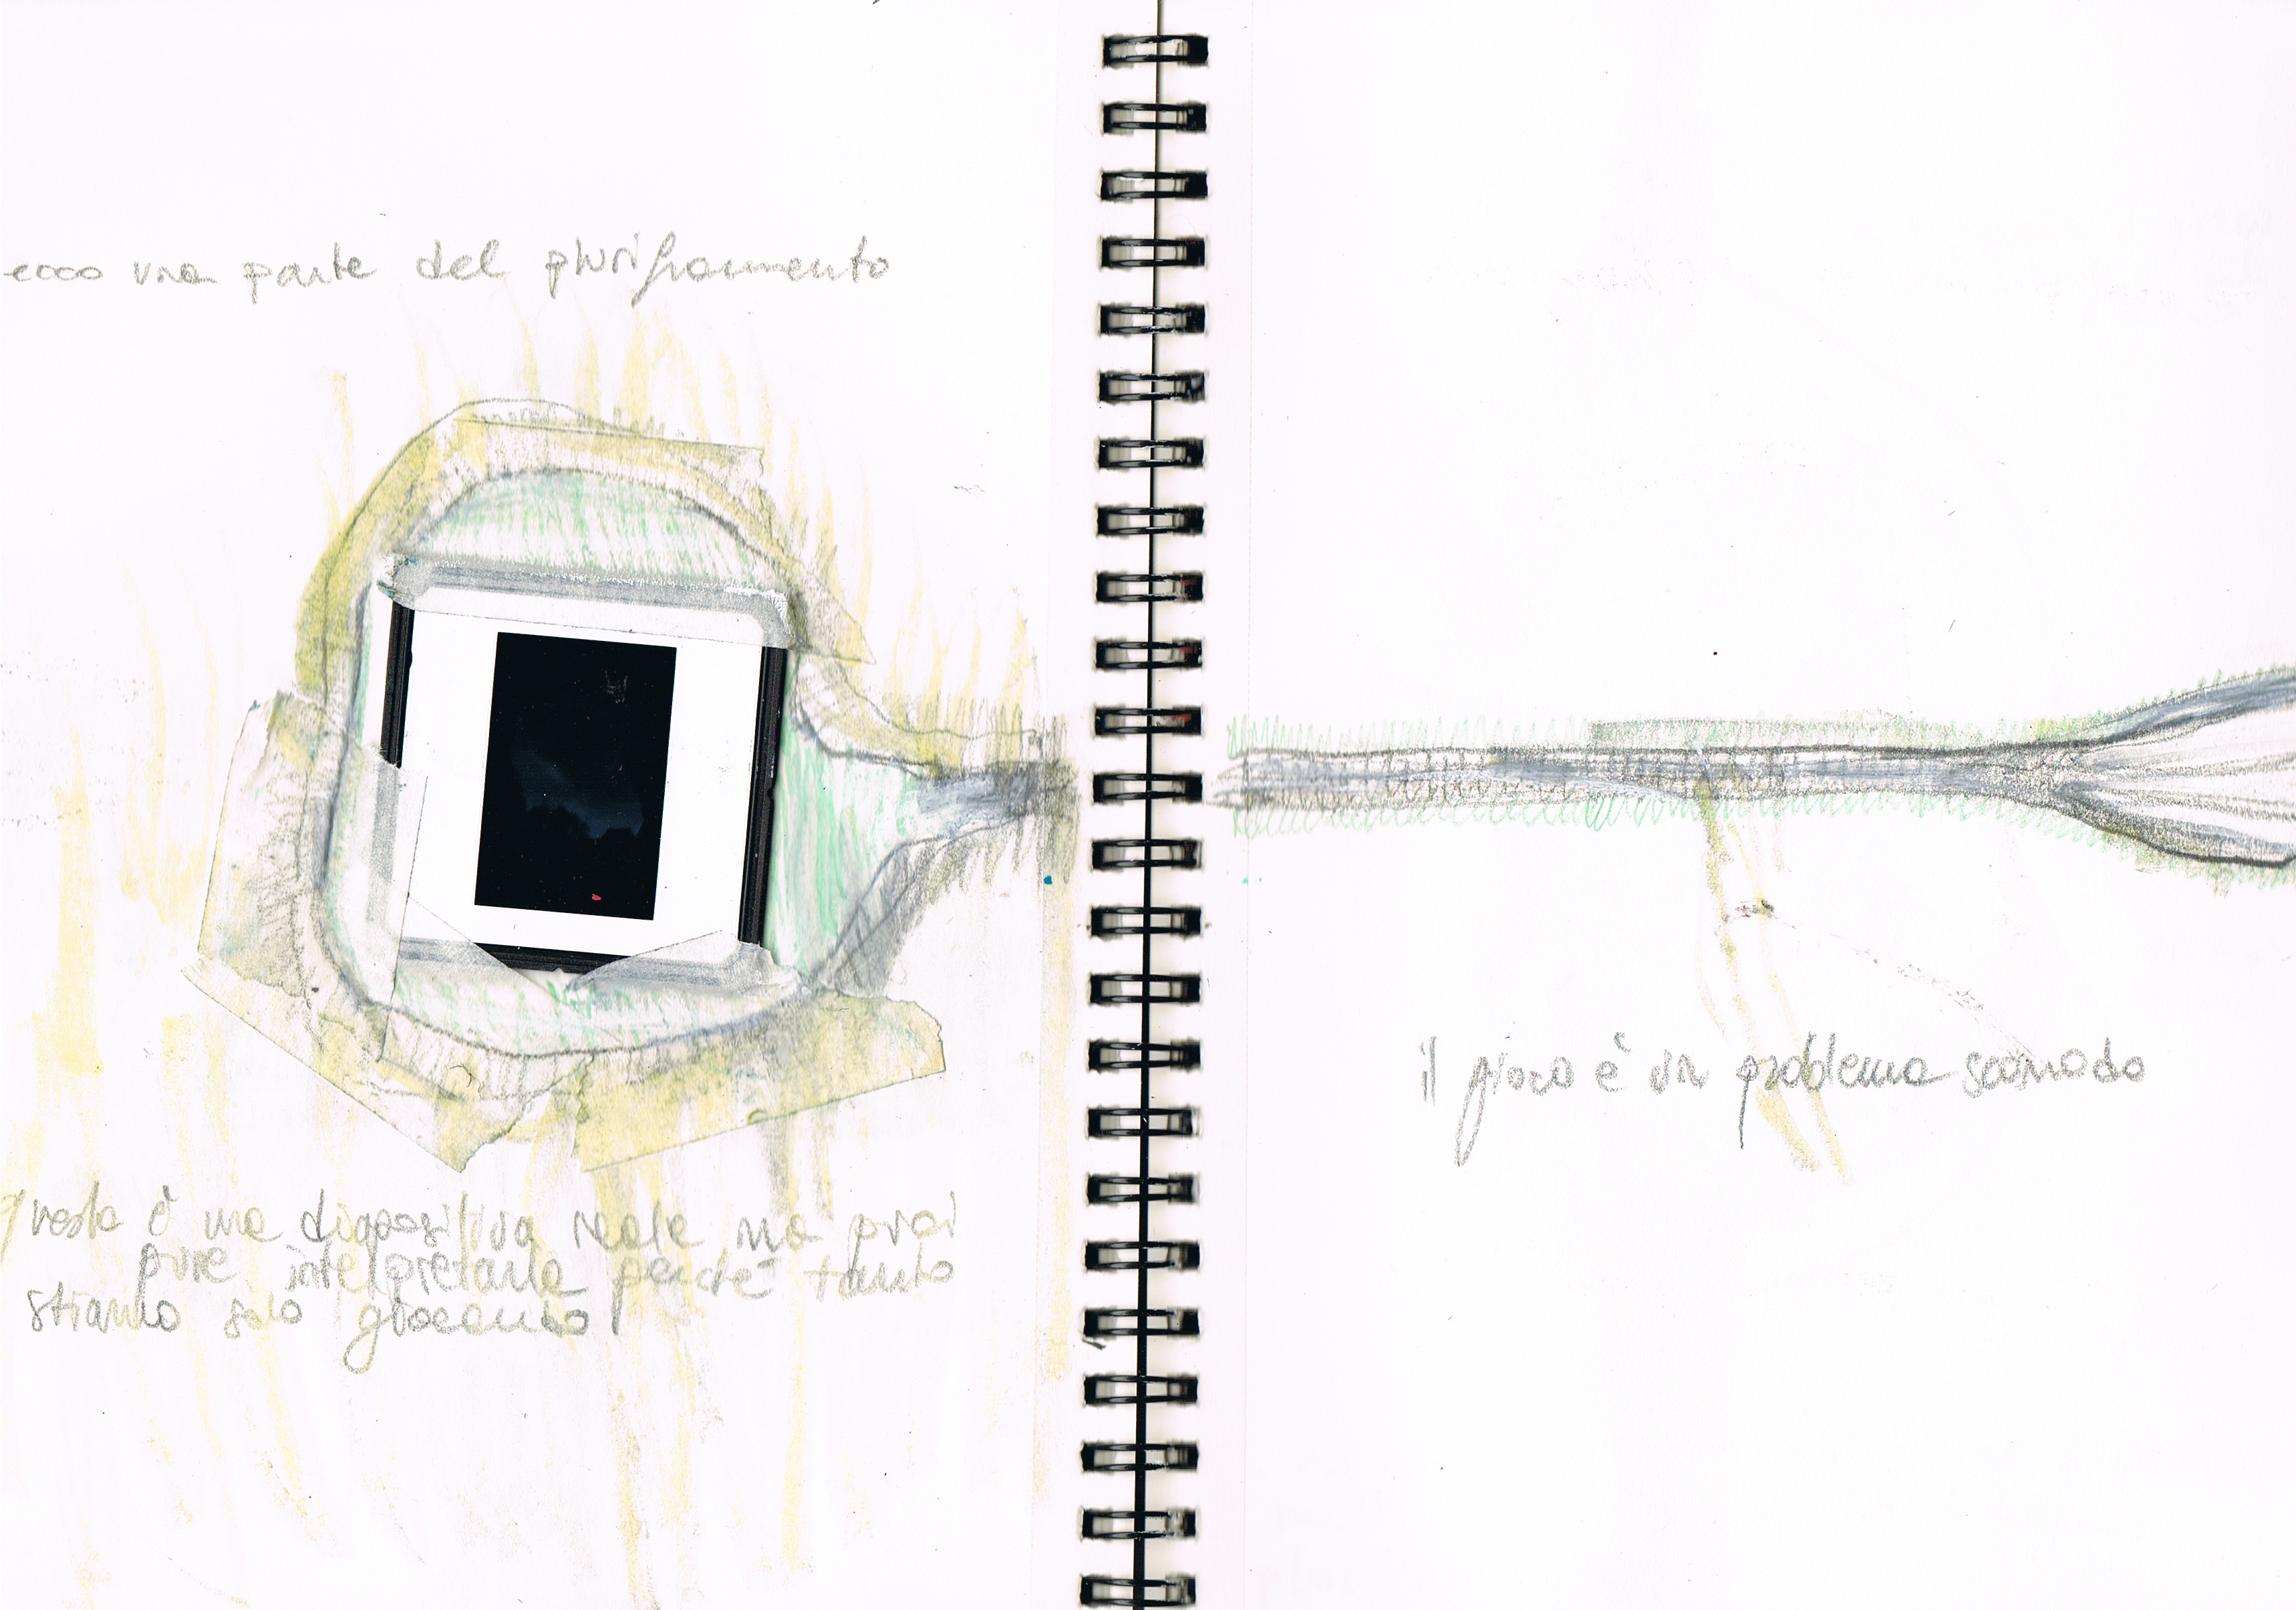 ecco una parte del pluriframmento
questa è una diapositiva reale ma puoi
pure interpretarla perché tanto
stiamo solo giocando!
il gioco è un problema scomodo